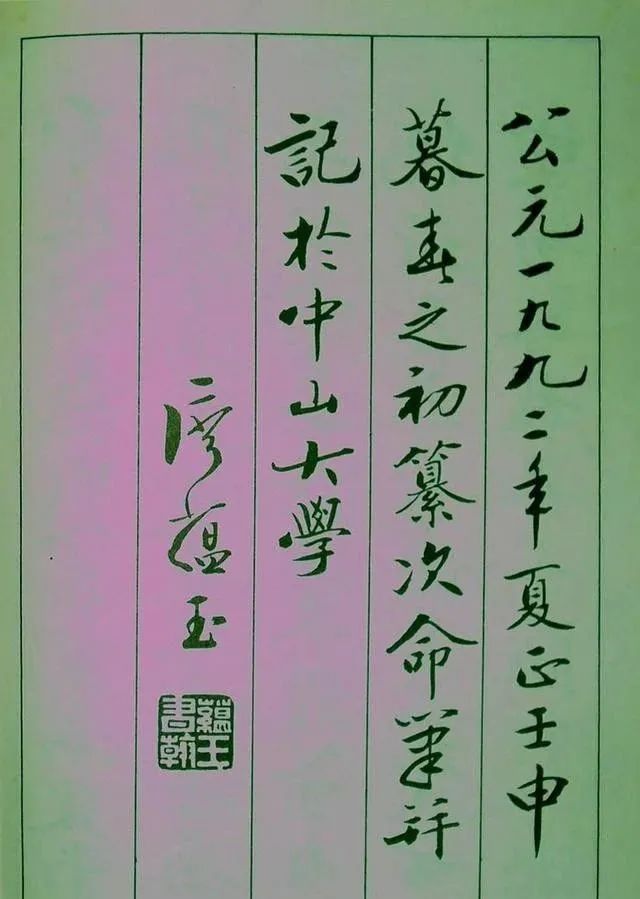 公元一九九二年夏正壬申
暮春之初纂次命筆并
記於中山大學
廖蘊玉
蘊玉書翰